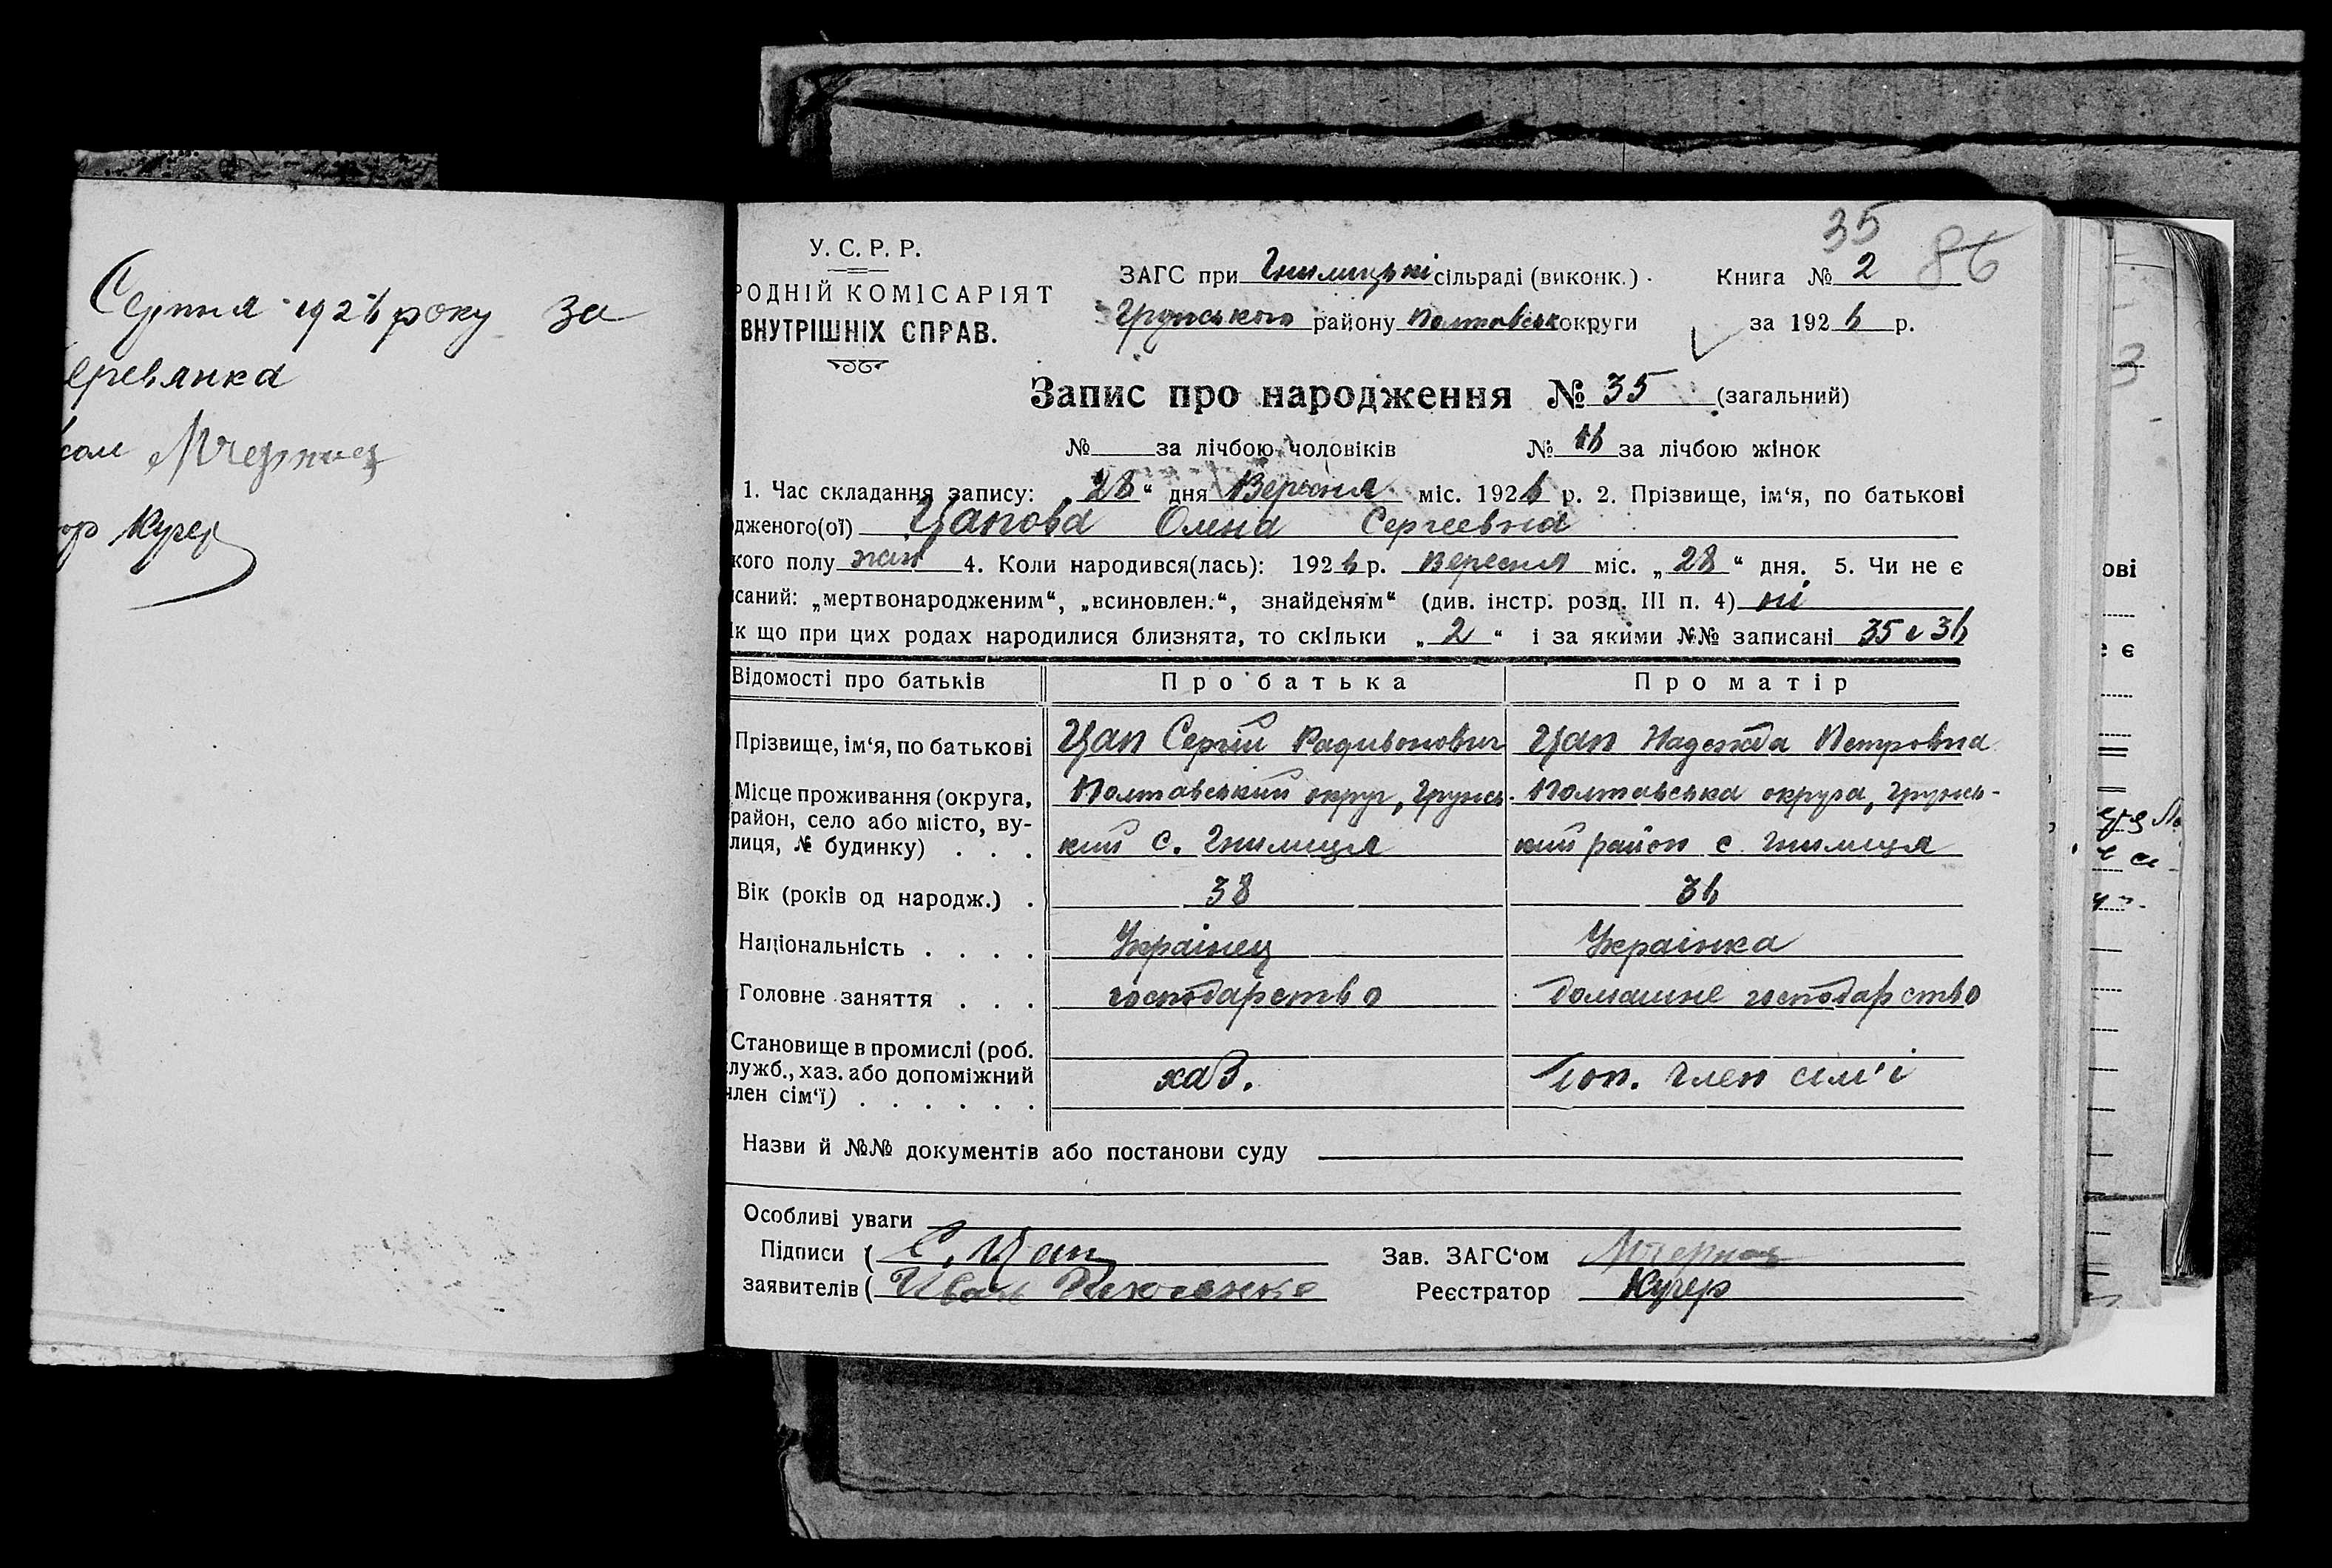 Серпня 1926 року за
еревянка
ком МЧерниш
ор Кучер
35 86
У. С. Р. Р.
РОДНІЙ КОМІСАРІЯТ
ВНУТРІШНІХ СПРАВ.
ЗАГС при Гнилицькі сільраді (виконк.) Книга № 2
Грунського району Полтавськ округи за 1926 р.
Запис про народження № 35 (загальний)
№ за лічбою чоловіків № 16 за лічбою жінок
1. Час складання запису: „28“ дня Вересня міс. 1926 р. 2. Прізвище, ім‘я, по батькові
дженого(ої) Цапова Олена Сергеевна
кого полу жін 4. Коли народився(лась): 1926 р. вересня міс. „28“ дня. 5. Чи не є
исаний: „мертвонародженим“, „всиновлен.“, знайденям“ (див. інстр. розд. III п. 4) ні
к що при цих родах народилися близнята, то скільки „2“ і за якими №№ записані 35 і 36
Відомості про батьків Про батька Про матір
Прізвище, ім‘я, по батькові Цап Сергій Радивонович Цап Надежда Петровна
Місце проживання (округа, Полтавський округ, Грунсь- Полтавська округа, Грунсь-
район, село або місто, ву-
лиця, № будинку) . . . кий с. Гнилиця кий район с. Гнилиця
Вік (років од народж.) . 38 36
Національність . . . . Украінец Украінка
Головне заняття . . . господарство домашне господарство
Становище в промислі (роб.
лужб., хаз. або допоміжний хаз. Доп. член сім'і
член сім‘ї) . . . . . .
Назви й №№ документів або постанови суду
Особливі уваги
Підписи ( С. Цап Зав. ЗАГС‘ом МЧерниш
заявителів ( Иван Реєстратор Кучер
3
ові
є